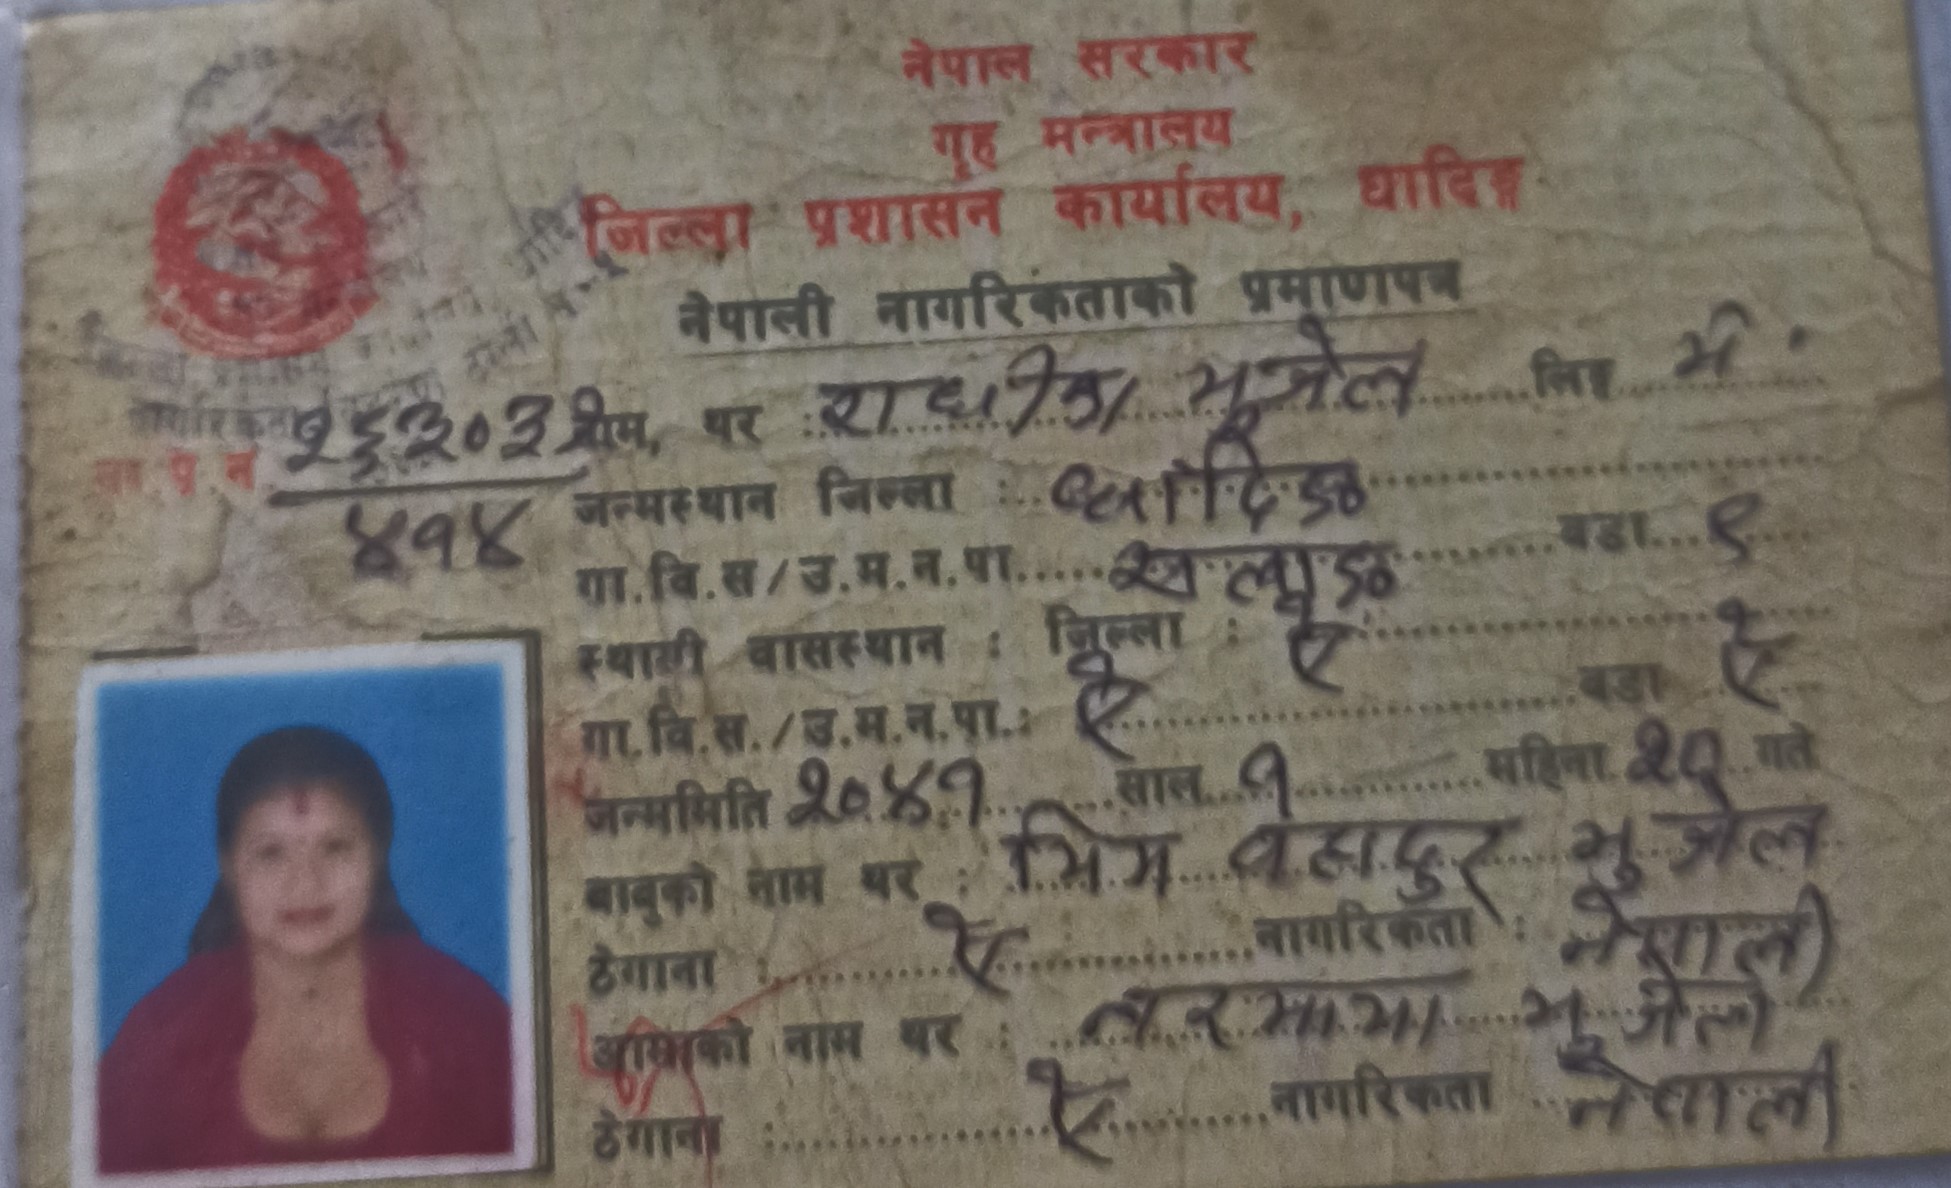 नेपाल सरकार
गृह मन्त्रालय
जिल्ला प्रशासन कार्यालय, धादिङ्ग
नेपाली नागरिकताको प्रमाणपत्र
नाम, थर : राधीका भूजेल लिङ्ग
ना प्र नं
४१४
जन्मस्थान जिल्ला : धादिङ
गा.वि.स/उ.म.न.पा. वडा ९
स्थायी वासस्थान : जिल्ला : ऐ
गा.वि.स./उ.म.न.पा.: ऐ वडा ऐ
जन्ममिति २०४१ साल १ महिना गते
बाबुको नाम थर : भिम बहादुर भुजेल
ठेगाना : ऐ नागरिकता : नेपाली
आमाको नाम थर : भुजेल
ठेगाना : ऐ नागरिकता नेपाली